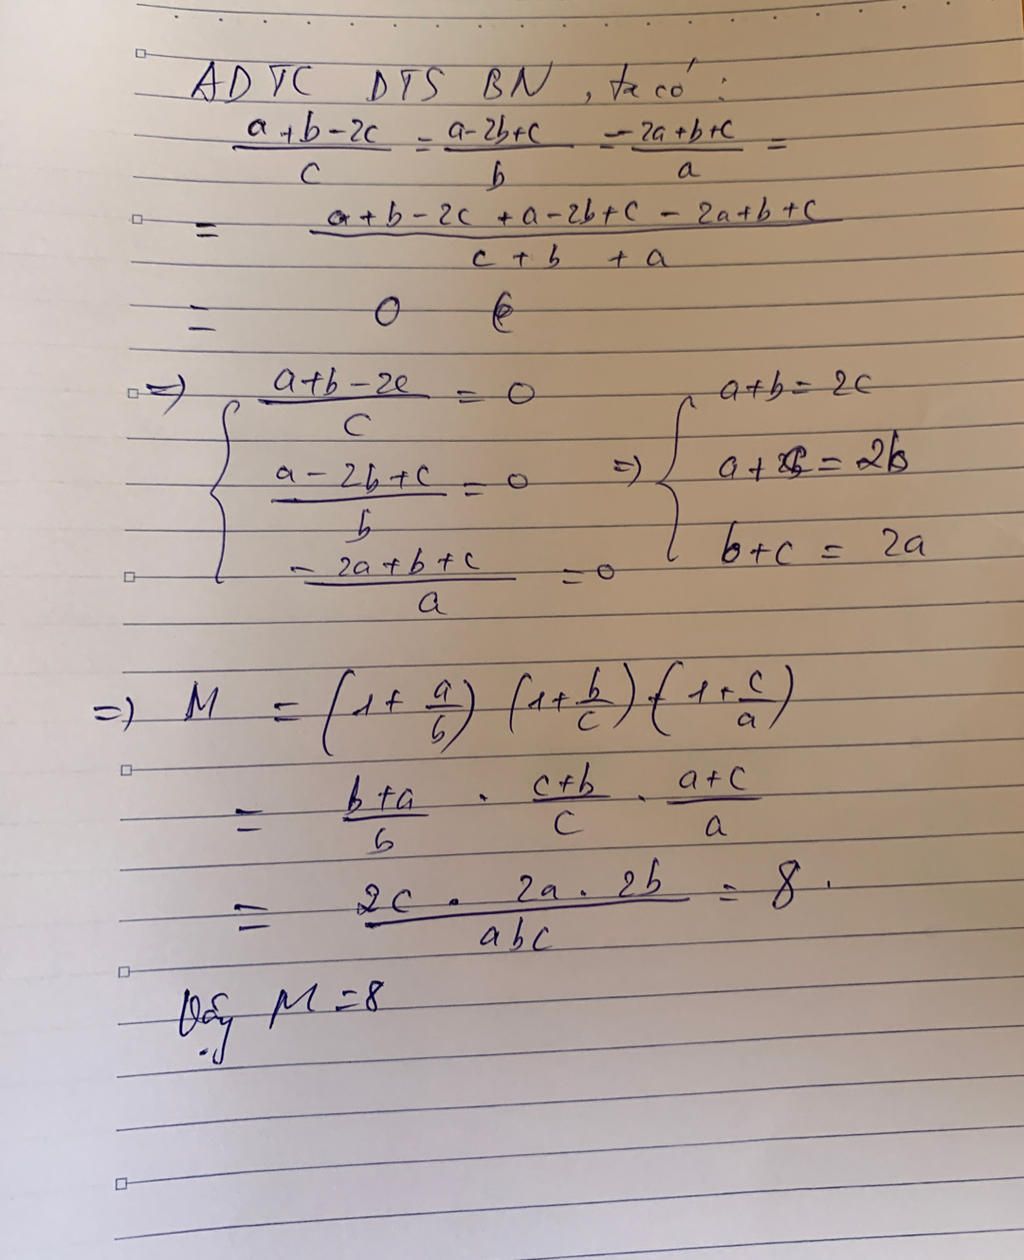 ADTC DTS BN, ta có:
\frac{a+b-2c}{c} = \frac{a-2b+c}{b} = \frac{-2a+b+c}{a} =
= \frac{a+b-2c+a-2b+c-2a+b+c}{c+b+a}
= 0
=> { \frac{a+b-2c}{c} = 0 => { a+b = 2c
\frac{a-2b+c}{b} = 0 a+c = 2b
\frac{-2a+b+c}{a} = 0 b+c = 2a
=> M = (1+\frac{a}{b}) (1+\frac{b}{c}) (1+\frac{c}{a})
= \frac{b+a}{b} . \frac{c+b}{c} . \frac{a+c}{a}
= \frac{2c . 2a . 2b}{abc} = 8 .
Vậy M = 8